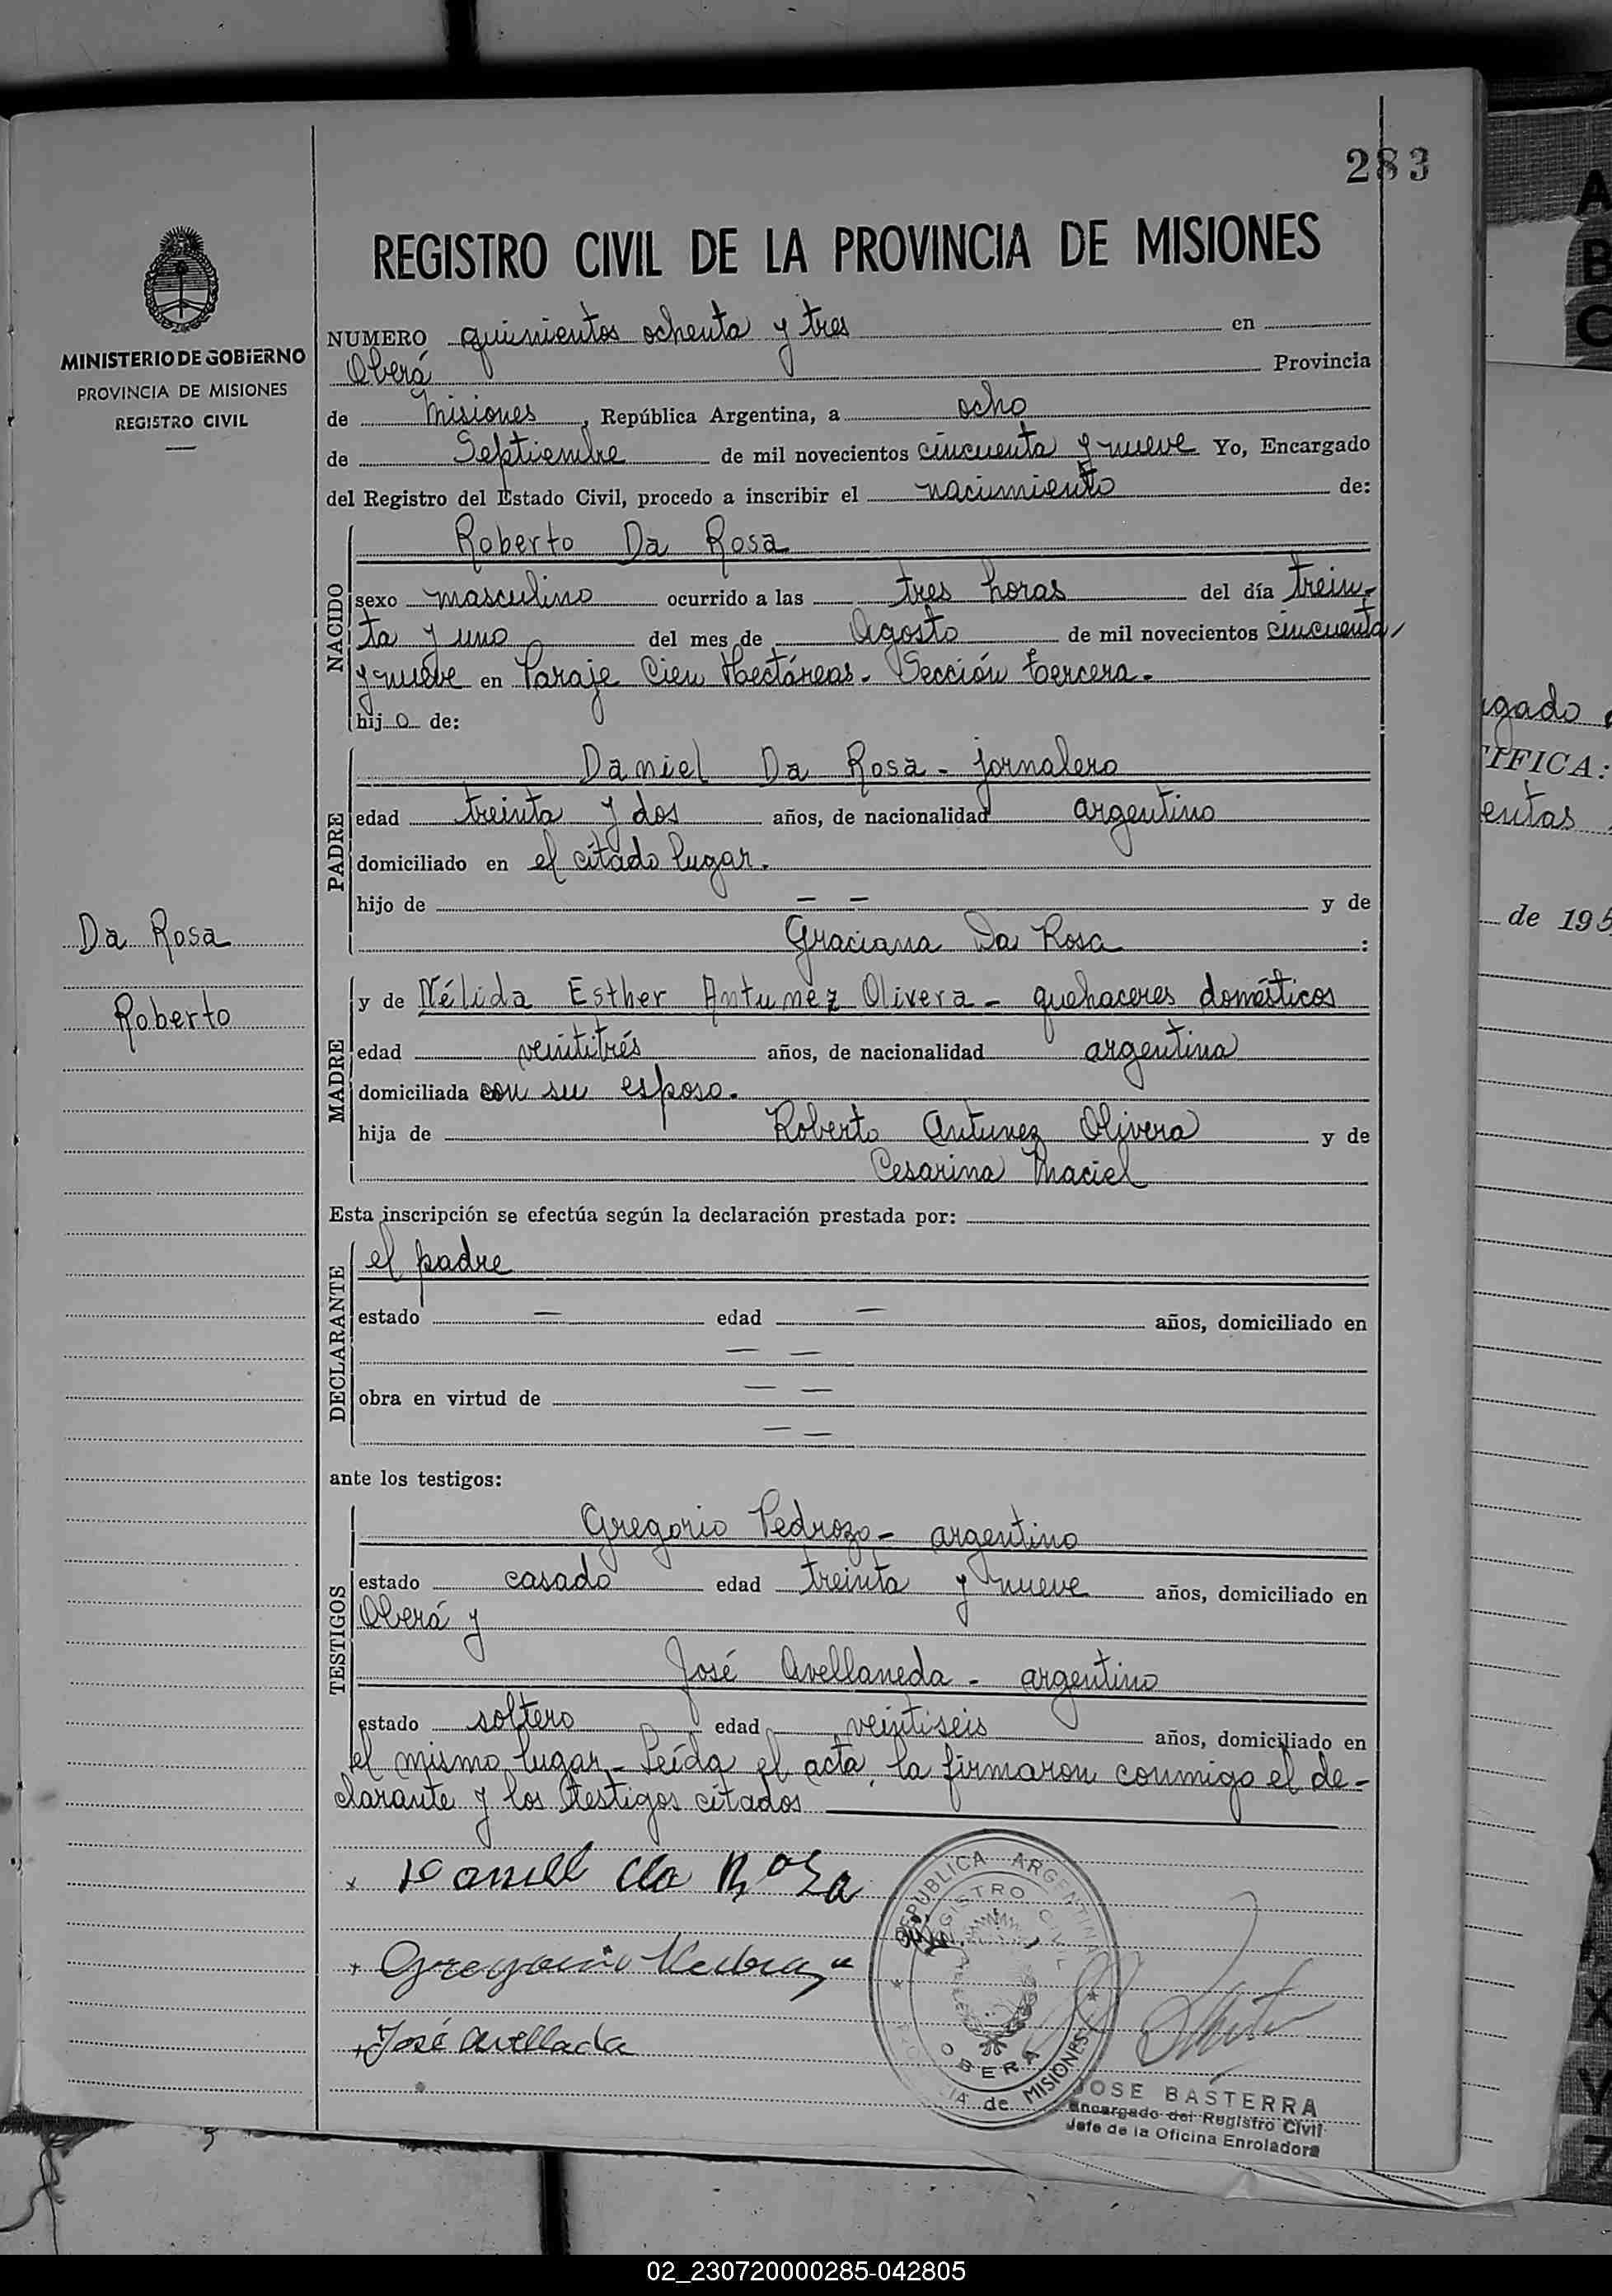 283
REGISTRO CIVIL DE LA PROVINCIA DE MISIONES
MINISTERIO DE GOBIERNO
PROVINCIA DE MISIONES
REGISTRO CIVIL
NUMERO quinientos ochenta y tres en
Oberá Provincia
de Misiones, República Argentina, a ocho
de Septiembre de mil novecientos cincuenta y nueve Yo, Encargado
del Registro del Estado Civil, procedo a inscribir el nacimiento de:
NACIDO
Roberto Da Rosa
sexo masculino ocurrido a las tres horas del día trein-
ta y uno del mes de Agosto de mil novecientos cincuenta
y nueve en Paraje Cien Hectáreas - Sección tercera -
hijo de:
PADRE
Daniel Da Rosa - jornalero
edad treinta y dos años, de nacionalidad argentino
domiciliado en el citado lugar.
hijo de — — y de
Graciana Da Rosa :
Da Rosa
Roberto
MADRE
y de Nélida Esther Antunez Olivera - quehaceres domésticos
edad veintitrés años, de nacionalidad argentina
domiciliada con su esposo.
hija de Roberto Antunez Olivera y de
Cesarina Maciel
Esta inscripción se efectúa según la declaración prestada por:
DECLARANTE
el padre
estado — edad — años, domiciliado en
— —
obra en virtud de — —
— —
ante los testigos:
TESTIGOS
Gregorio Pedrozo - argentino
estado casado edad treinta y nueve años, domiciliado en
Oberá y
José Avellaneda - argentino
estado soltero edad veintiseis años, domiciliado en
el mismo lugar - Leída el acta, la firmaron conmigo el de-
clarante y los testigos citados
x Daniel da Rosa
+ Gregorio
+ José Avellada
REPUBLICA ARGENTINA
REGISTRO CIVIL
OBERA
de MISIONES
JOSE BASTERRA
Encargado del Registro Civil
Jefe de la Oficina Enroladora
gado
TIFICA:
entas
de 195
A
B
C
X
Y
Z
02_230720000285-042805